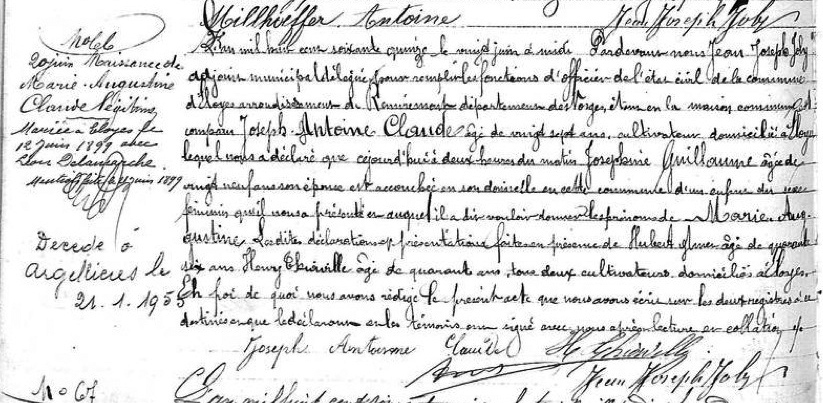 Millhoeffer Antoine Jean Joseph Joly
No 66
20 juin Naissance de
Marie-Augustine
Claude légitime
Mariée à Eloyes le
12 juin 1899 avec
Delamarche
juin 1899
Decede à
Argellieres le
21.1.1955
L'an mil huit cent soixante quinze le vingt juin à midi Pardevant nous Jean Joseph Joly
adjoint municipal délégué pour remplir les fonctions d'officier de l'état civil de la commune
d'Eloyes arrondissement de Remiremont département des Vosges, étant en la maison commune est
comparu Joseph-Antoine Claude âgé de vingt sept ans, cultivateur domicilié à Eloyes
lequel nous a déclaré que cejourd'hui à deux heures du matin Josephine Guillaume âgée de
vingt neuf ans son épouse est accouchée en son domicile en cette commune d'un enfant du sexe
féminin qu'il nous a présenté et auquel il a dit vouloir donner les prénoms de Marie Aug-
ustine. Lesdites déclaration et présentation faites en présence de Hubert âgé de quarante
six ans Henry âgé de quarante ans, tous deux cultivateurs domiciliés à Eloyes.
En foi de quoi nous avons rédigé le présent acte que nous avons écrit sur les deux registres à ce
destinés et que le déclarant et les témoins ont signé avec nous après lecture et collation
Joseph Antoine Claude H.
Jean Joseph Joly
No 67
L'an mil huit cent